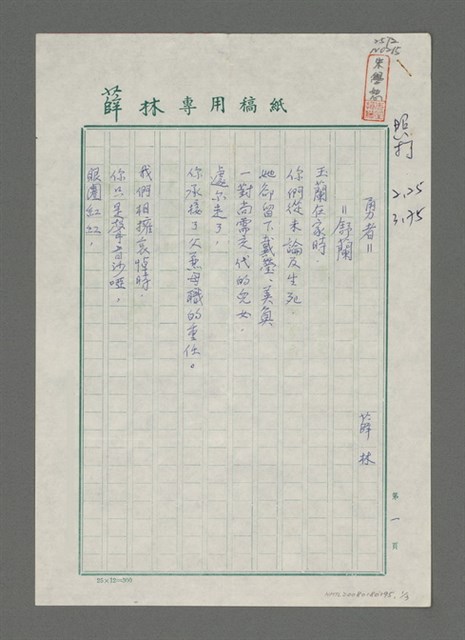 2512
N0215
薛林專用稿紙
照打
2.25
3.95
勇者=
=舒蘭
薛林
玉蘭在家時.
你們從未論及生死.
她卻留下戴瑩、美奐
一對尚需交代的兒女.
遽尔走了.
你承接了父兼母職的重任。
我們相擁哀悼時.
你只是聲音沙啞,
眼圈紅紅.
第一頁
25×12=300